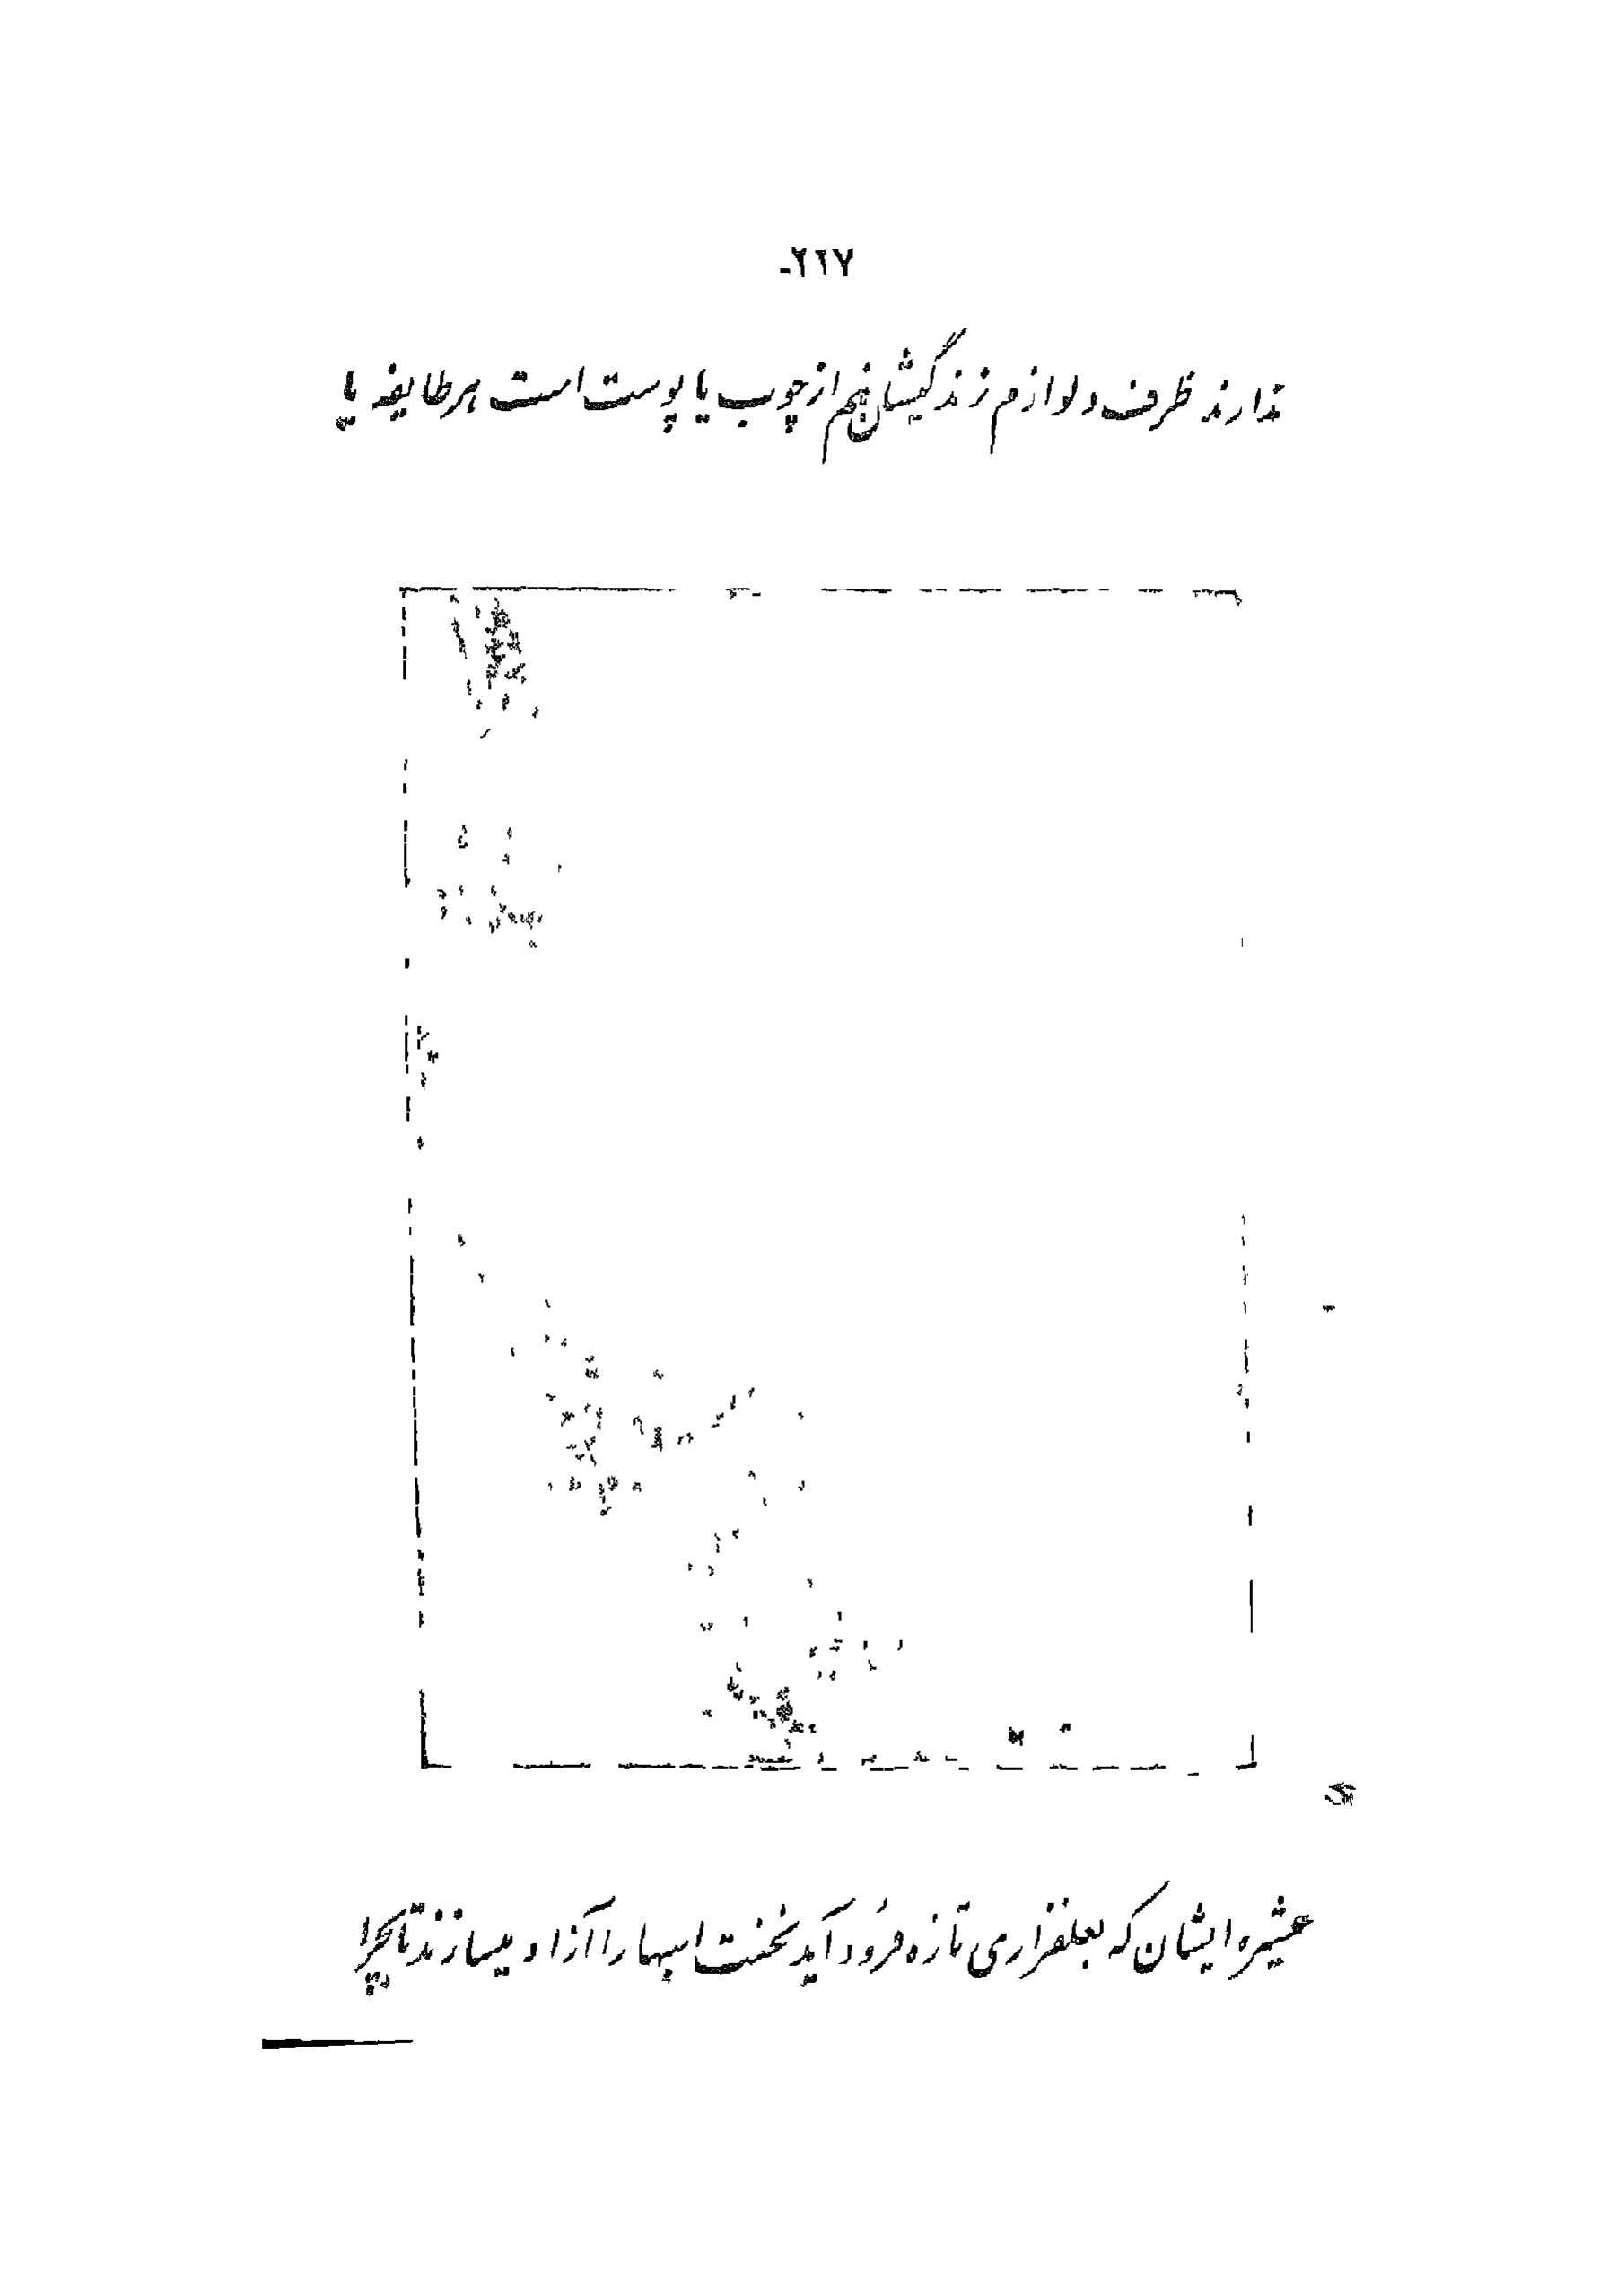 -۲۶۷
ندارند ظرف و لوازم زندگیشان هم از چوب یا پوست است هر طایفه یا
عشیره ایشان که بعلفزاری تازه فرُود آید نخست اسبها را آزاد میسازند تا بچرا